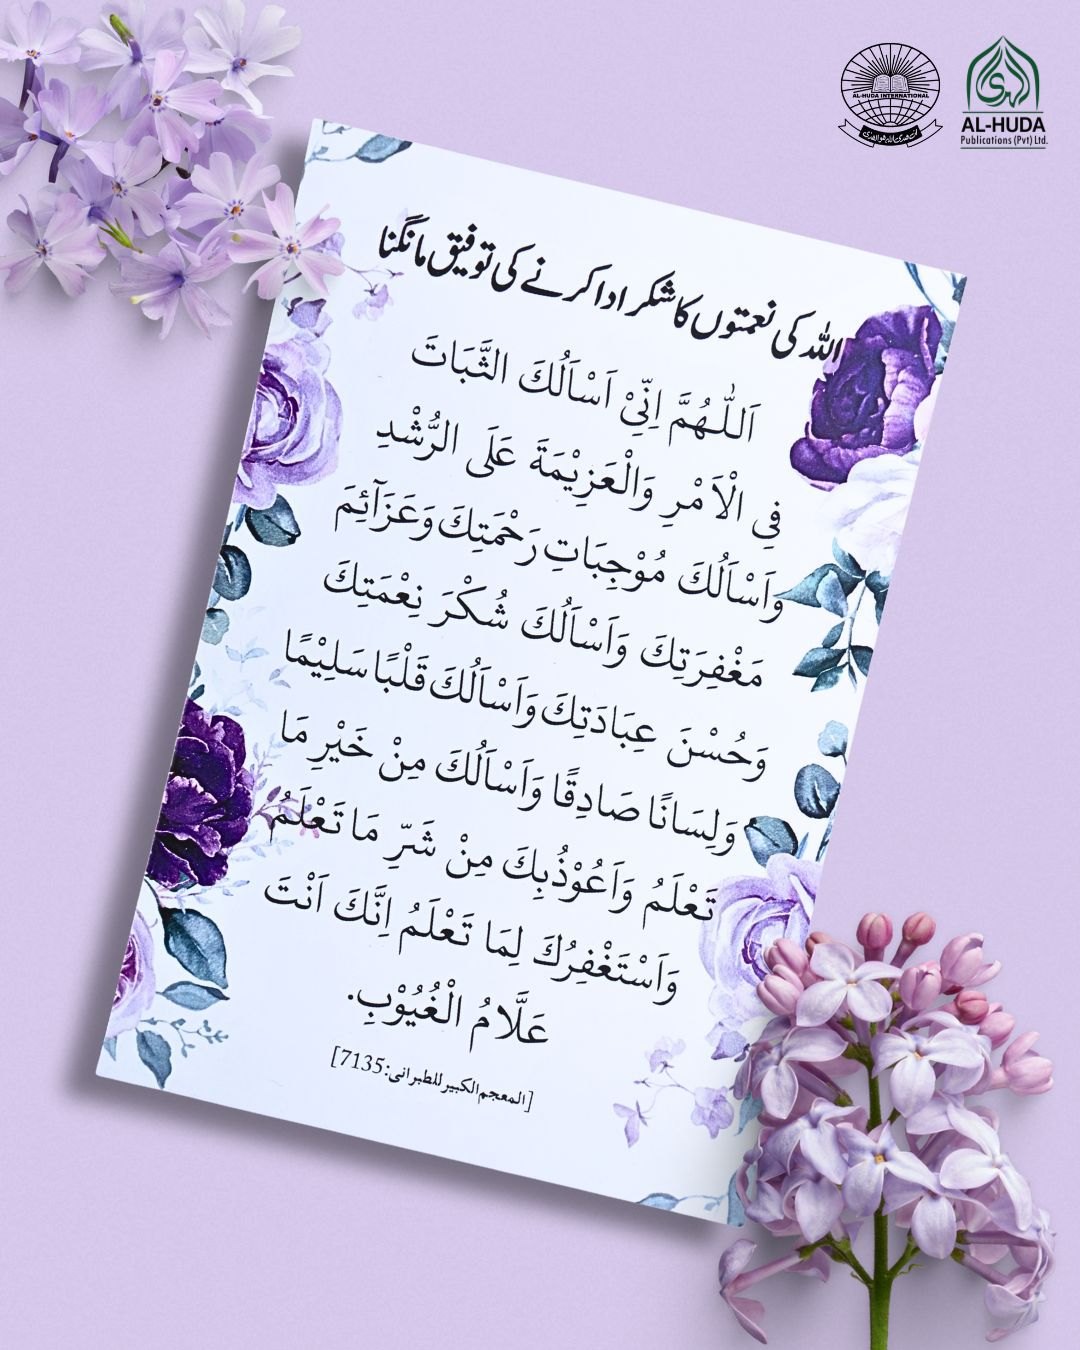 AL-HUDA INTERNATIONAL
AL-HUDA
Publications (Pvt) Ltd.
اللہ کی نعمتوں کا شکر ادا کرنے کی توفیق مانگنا
اَللّٰهُمَّ اِنِّىْ اَسْاَلُكَ الثَّبَاتَ
فِى الْاَمْرِ وَالْعَزِيْمَةَ عَلَى الرُّشْدِ
وَاَسْاَلُكَ مُوْجِبَاتِ رَحْمَتِكَ وَعَزَآئِمَ
مَغْفِرَتِكَ وَاَسْاَلُكَ شُكْرَ نِعْمَتِكَ
وَحُسْنَ عِبَادَتِكَ وَاَسْاَلُكَ قَلْبًا سَلِيْمًا
وَلِسَانًا صَادِقًا وَاَسْاَلُكَ مِنْ خَيْرِ مَا
تَعْلَمُ وَاَعُوْذُبِكَ مِنْ شَرِّ مَا تَعْلَمُ
وَاَسْتَغْفِرُكَ لِمَا تَعْلَمُ اِنَّكَ اَنْتَ
عَلَّامُ الْغُيُوْبِ.
[المعجم الكبير للطبرانى: 7135]